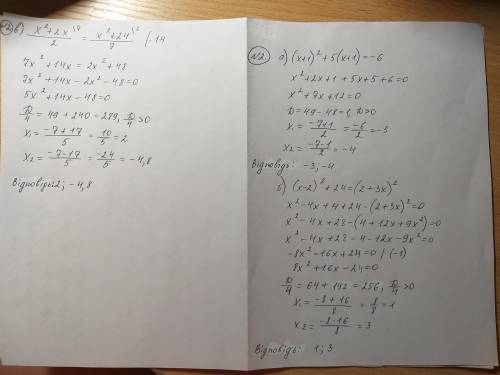 в) (x²+2x)/2 \7 = (x²+24)/7 \2 |·14
7x²+14x=2x²+48
7x²+14x-2x²-48=0
5x²+14x-48=0
D/4=49+240=289, D/4>0
x₁=(-7+17)/5=10/5=2
x₂=(-7-17)/5=-24/5=-4,8
Відповідь: 2; -4,8
№2 а) (x+1)²+5(x+1)=-6
x²+2x+1+5x+5+6=0
x²+7x+12=0
D=49-48=1, D>0
x₁=(-7+1)/2=-6/2=-3
x₂=(-7-1)/2=-4
Відповідь: -3;-4
б) (x-2)²+24=(2+3x)²
x²-4x+4+24-(2+3x)²=0
x²-4x+28-(4+12x+9x²)=0
x²-4x+28-4-12x-9x²=0
-8x²-16x+24=0 |·(-1)
8x²+16x-24=0
D/4=64+192=256, D/4>0
x₁=(-8+16)/8=8/8=1
x₂=(-8-16)/8=3
Відповідь: 1;3